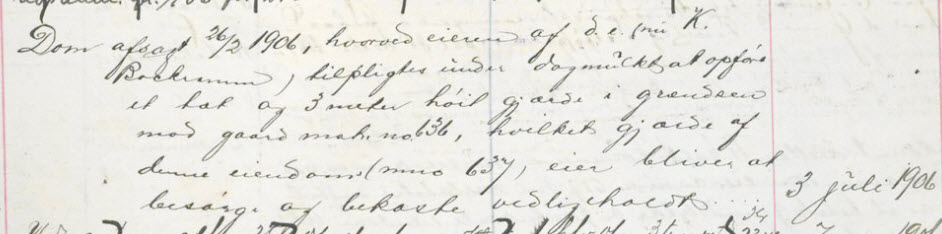 Dom afsagt 26/2 1906, hvorved eieren af d. e. (nu K.
Bockmann) tilpligtes under dagmulkt at opføre
et tæt og 3 meter høit gjærde i grændsen
mod gaard matr. no. 636, hvilket gjærde af
denne eiendoms (mno 637), eier bliver at
besørge og bekoste vedligeholdt. 3 juli 1906